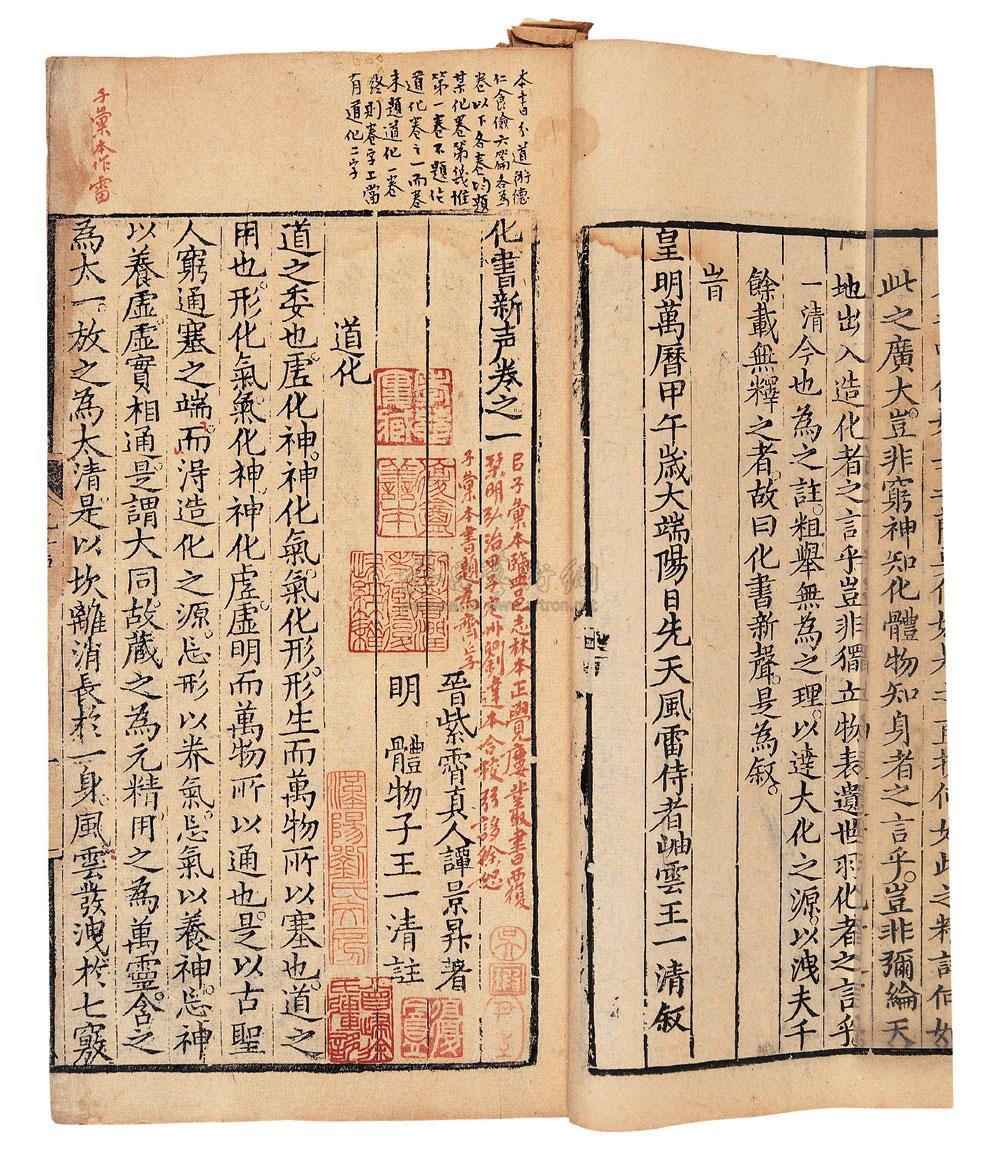 此之廣大。豈非窮神知化體物知身者之言乎。豈非彌綸天
地出入造化者之言乎豈非獨立物表遺世羽化者之言乎
一清今也為之註。粗舉無為之理。以達大化之源。以洩夫千
餘載無釋之者。故曰化書新聲。是為敘。
旹
皇明萬曆甲午歲大端陽日先天風雷侍者岫雲王一清敘
本書分道術德
仁食儉六篇各為
卷以下各卷均題
某化卷第幾惟
第一卷不題作
道化卷之一而卷
末題道化一卷
終則卷字上當
有道化二字
化書新声卷之一
子彙本書題為齊子
晉紫霄真人譚景昇著
明 體物子王一清註
道化
道之委也虛化神。神化氣。氣化形。形生而萬物所以塞也。道之
用也。形化氣。氣化神。神化虛。虛明而萬物所以通也。是以古聖
人窮通塞之端。而淂造化之源。忘形以养氣。忘氣以養神。忘神
以養虛。虛實相通。是謂大同。故藏之為元精。用之為萬靈。含之
為太一。放之為太清。是以坎離消長於一身。風雲發洩於七竅
子彙本作雷